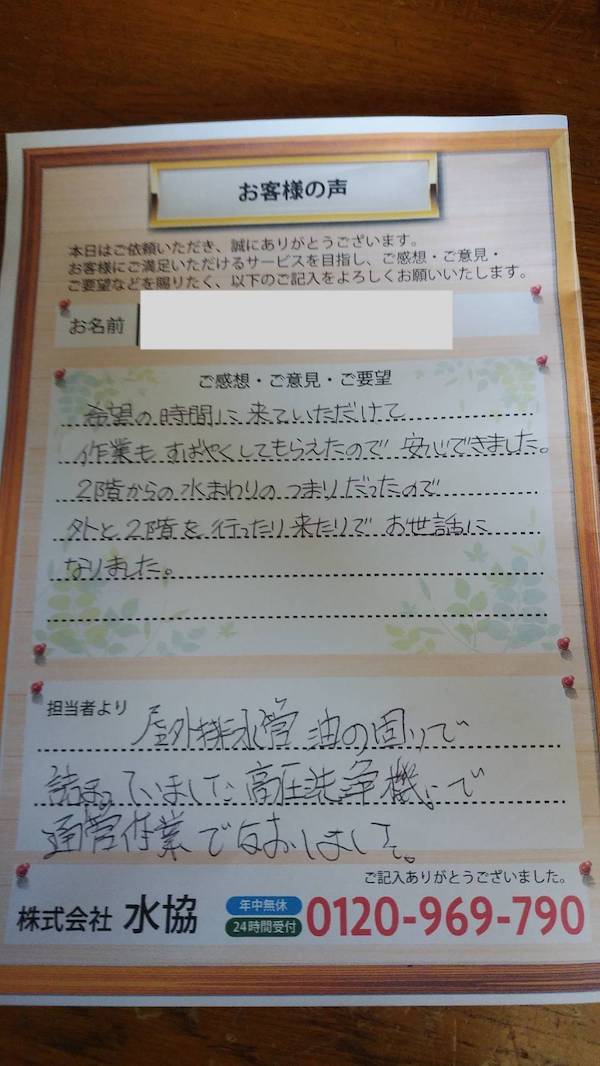 お客様の声
本日はご依頼いただき、誠にありがとうございます。
お客様にご満足いただけるサービスを目指し、ご感想・ご意見・
ご要望などを賜りたく、以下のご記入をよろしくお願いいたします。
お名前
ご感想・ご意見・ご要望
希望の時間に来ていただけて
作業もすばやくしてもらえたので 安心できました。
2階からの水まわりのつまりだったので
外と2階を行ったり来たりで お世話に
なりました。
担当者より 屋外排水管 油の固りで
詰まっていました 高圧洗浄機にで
通管作業でなおしました。
ご記入ありがとうございました。
株式会社 水協 年中無休 24時間受付 0120-969-790